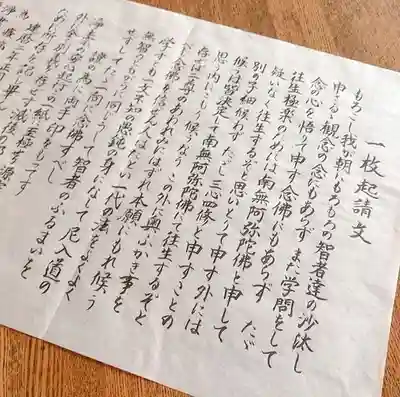 一枚起請文
もろこし我が朝にもろもろの智者達の沙汰し
申さるる観念の念にもあらず また学問をして
念の心を悟りて申す念佛にもあらず たゞ
往生極楽のためには南無阿弥陀佛と申して
疑いなく往生するぞと思いとりて申す外には
別の子細候わず たゞし三心四修と申すことの
候は皆決定して南無阿弥陀佛にて往生するぞと
思う内にこもり候うなり この外に奥ふかき事を
存ぜば二尊のあわれみにはずれ本願にもれ候う
べし 念佛を信ぜん人はたとい一代の法をよくよく
学すとも一文不知の愚鈍の身になして 尼入道の
無智のともがらに同じうして智者のふるまいを
せずしてただ一向に念佛すべし
証の為に両手印をもってす
浄土宗の安心起行この一紙に至極せり 源空が
所存この外に全く別義を存ぜず滅後の
邪義をふせがんために所存を記し畢んぬ
建暦二年正月